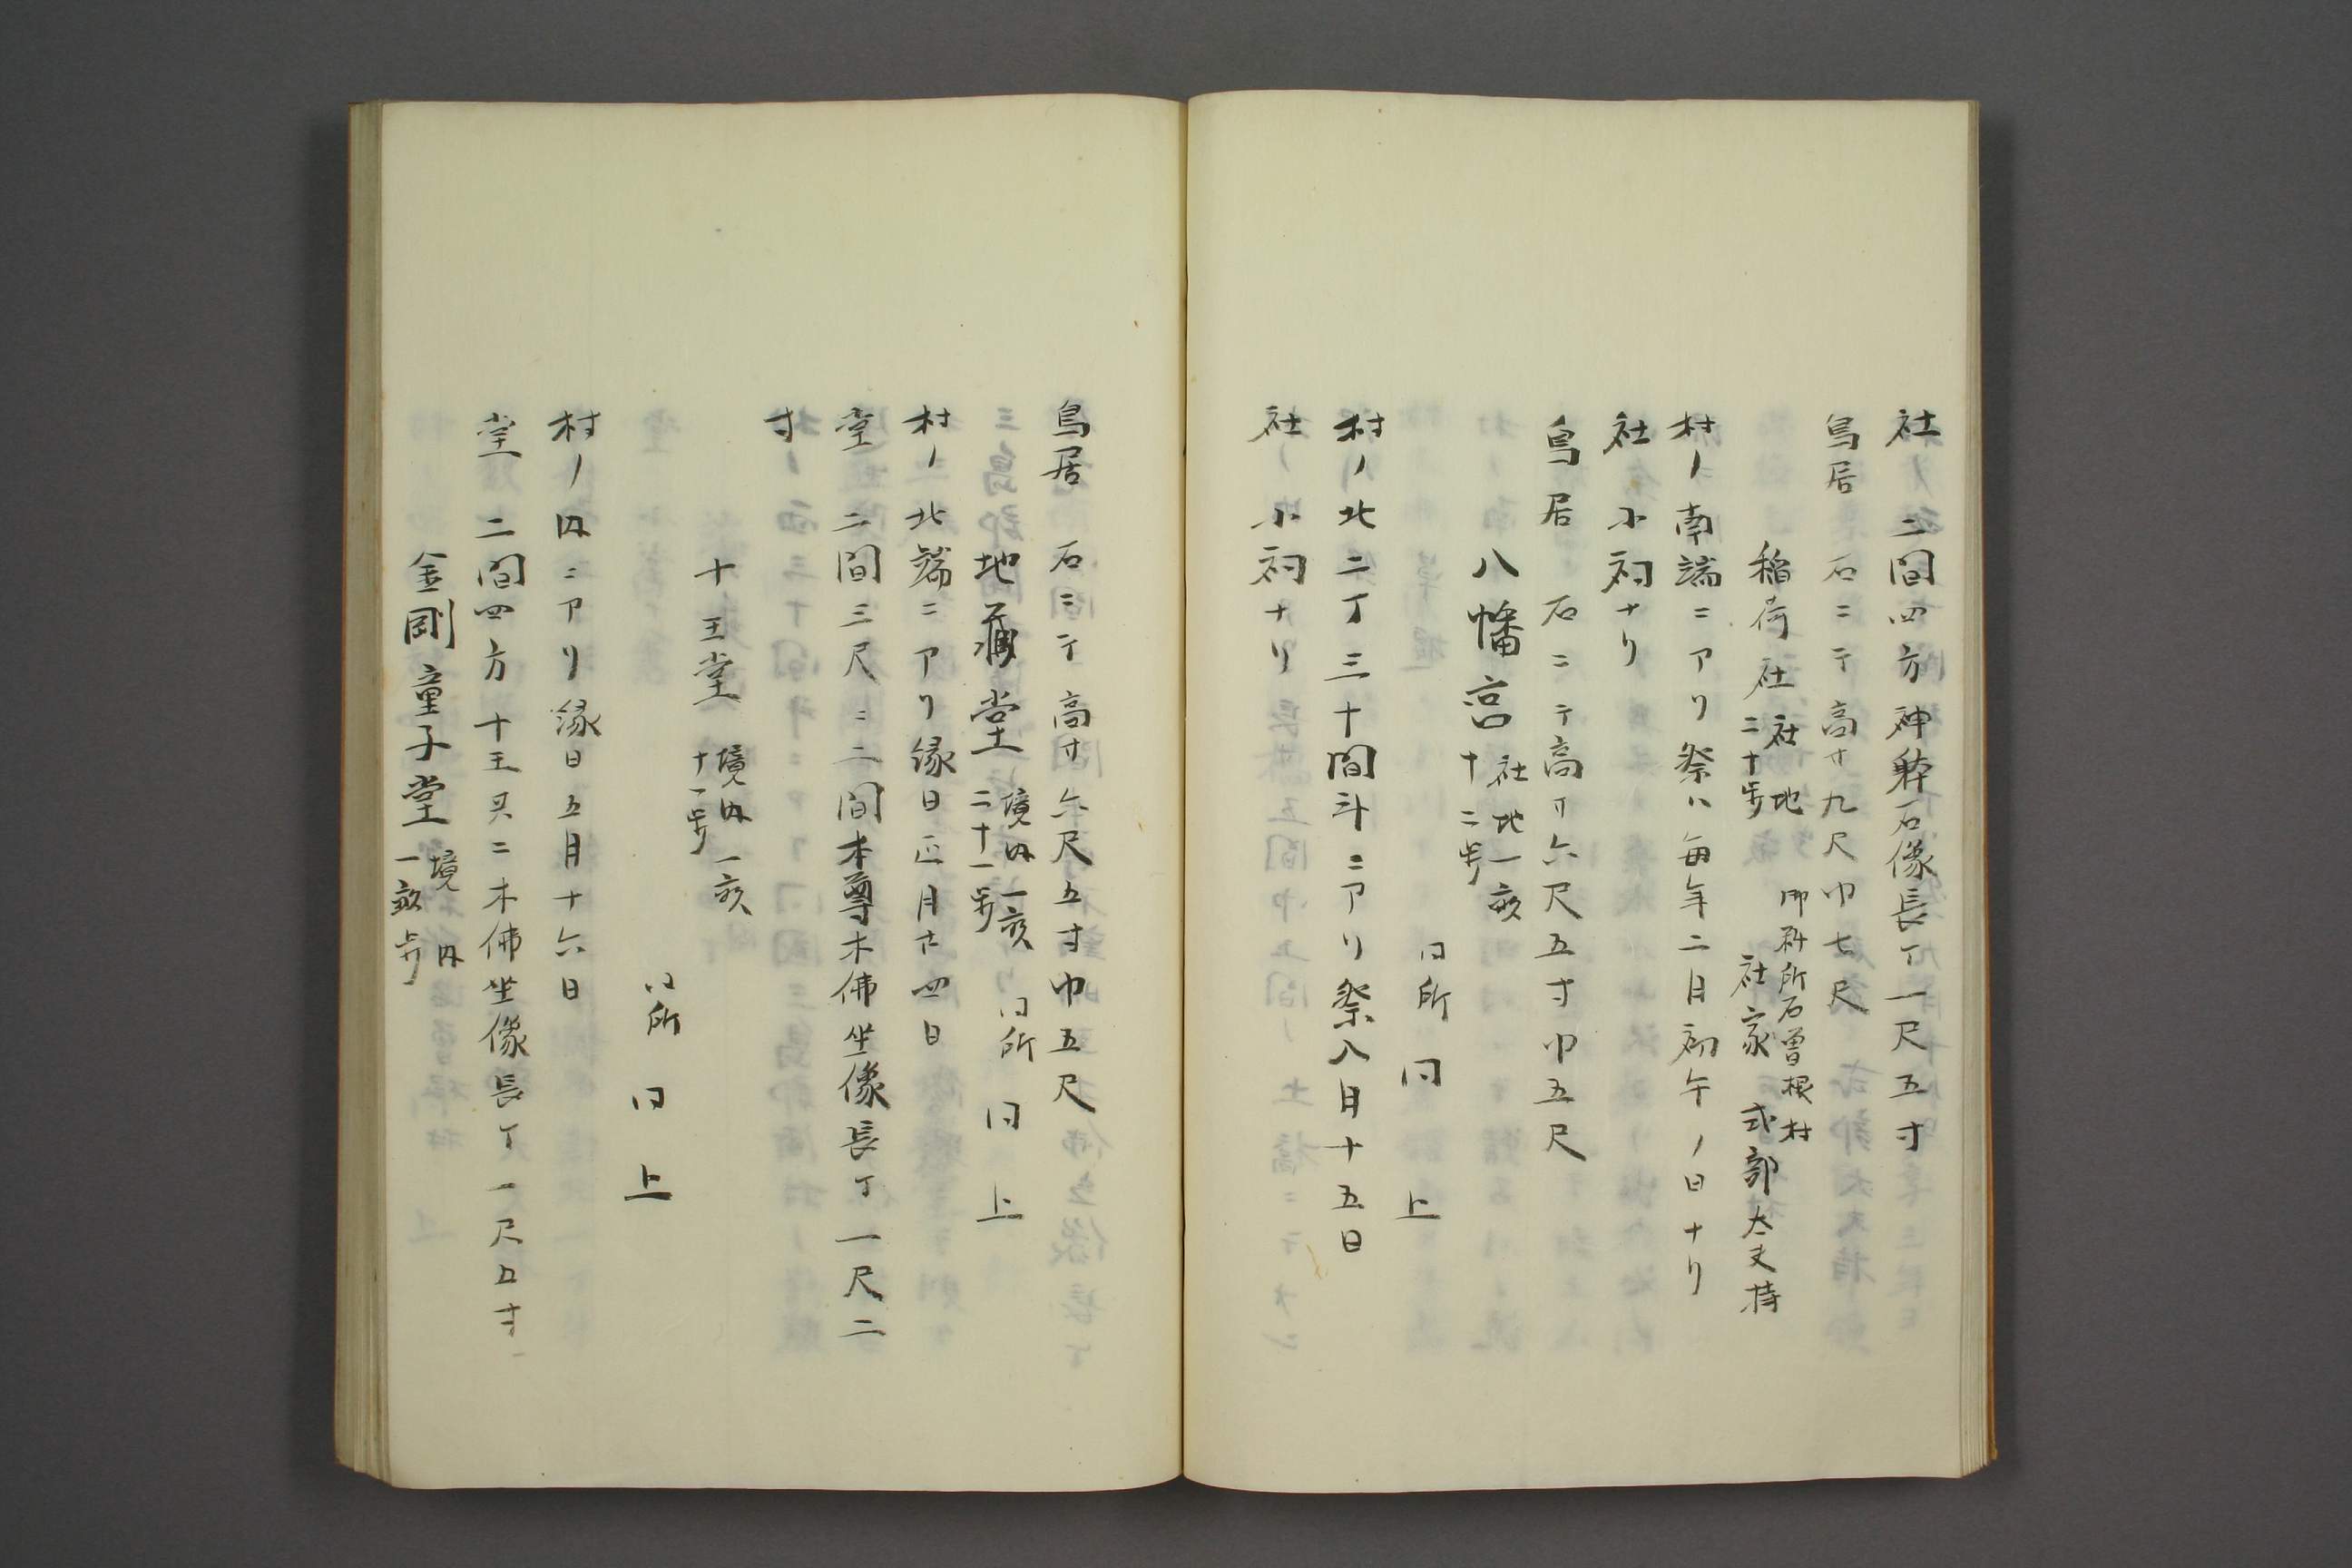 社 二間四方神躰石像長丁一尺五寸
鳥居 石ニテ高サ九尺巾七尺
稲荷社 社地二十歩 御料所石曽根村 社家 式部太夫持
村ノ南端ニアリ祭ハ毎年二月初午ノ日ナリ
社 小祠ナリ
鳥居 石ニテ高サ六尺五寸巾五尺
八幡宮 社地一畝十二歩
同所 同上
村ノ北二丁三十間斗ニアリ祭八月十五日
社 小祠ナリ
鳥居 石ニテ高サ六尺五寸巾五尺
地蔵堂 境内一畝二十一歩 同所 同上
村ノ北端ニアリ縁日正月廿四日
堂 二間三尺ニ二間本尊木佛坐像長丁一尺二
寸
十王堂 境内一畝十一歩
同所 同上
村ノ内ニアリ縁日五月十六日
堂 二間四方十王共ニ木佛坐像長丁一尺五寸
金剛童子堂 境内一畝歩